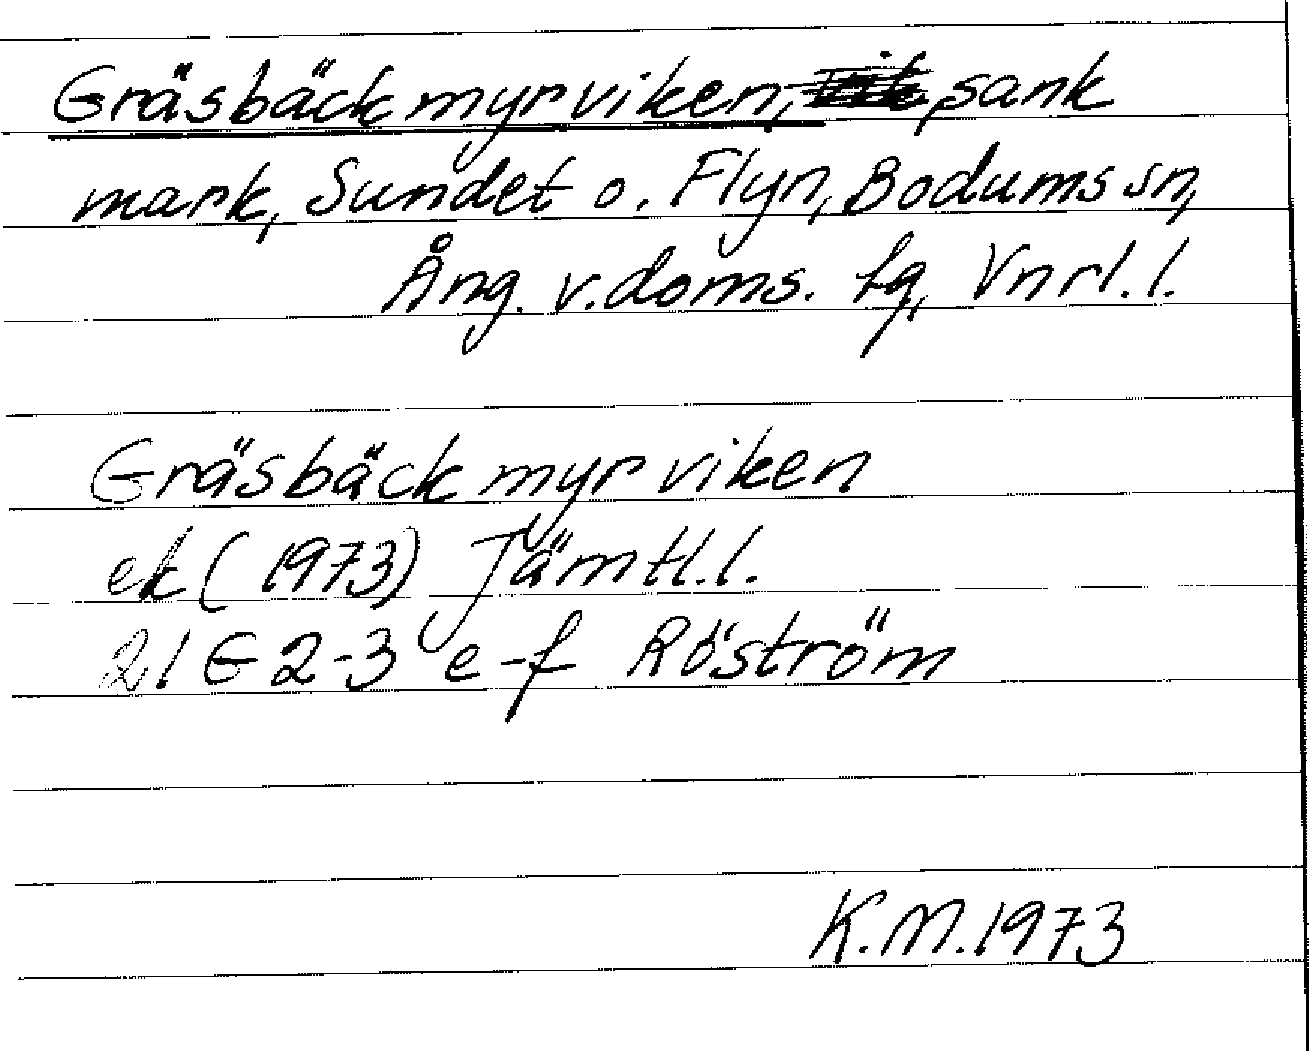 Gräsbäckmyrviken, sank
mark, Sundet o. Flyn, Bodums sn,
Ång. v. doms. fg, Vnrl. l.
Gräsbäckmyrviken
ek (1973) Jämtl. l.
21 G 2-3 e-f Röström
K.M. 1973